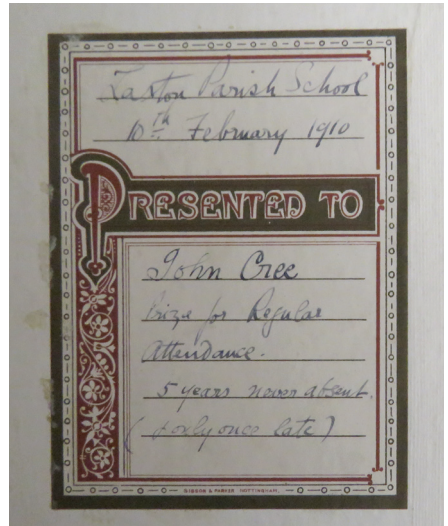 Laxton Parish School
10th February 1910
PRESENTED TO
John Cree
Prize for Regular
Attendance.
5 years never absent.
(& only once late)
GIBSON & PARKER NOTTINGHAM.